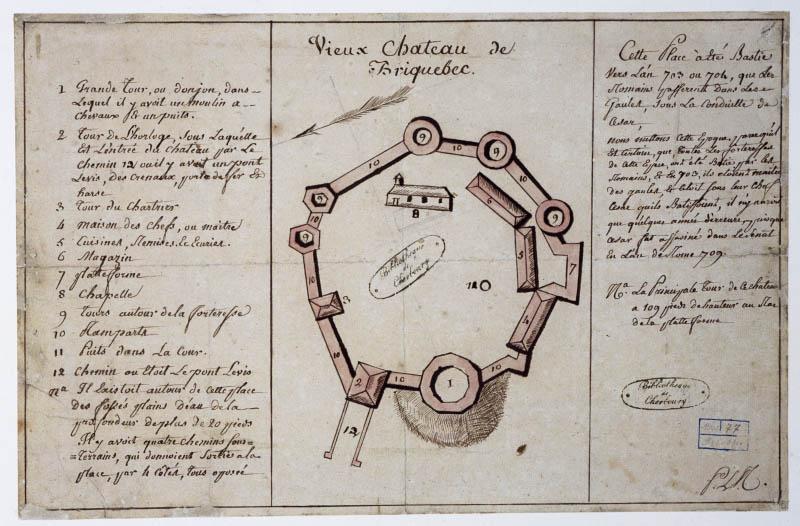 Vieux Chateau de
Briquebec.
1 Grande Tour, ou donjon, dans
Lequel il y avoit un moulin a
chevaux & un puits.
2 Tour de L'horloge, sous Laquelle
Est L'entrée du Chateau par Le
Chemin 12 ou il y avoit un pont
Levis, des Crenaux, porte de fer &
harse
3 Tour du Chartrier
4 maison des chefs, ou maitre
5 Cuisines, Remises, Le Ecuries.
6 Magazin
7 platteforme
8 Chapelle
9 Tours autour de la forteresse
10 Ramparts
11 Puits dans La Cour.
12 Chemin ou Etoit Le pont Levis
Na Il Existoit autour de cette place
Des fossés plains D'eau de la
profondeur de plus de 20 pieds
Il y avoit quatre chemins sou=
=terrains, qui donnoient Sortie a la
place, par 4 côtés, tous oposés
9
9
10
10
9
9
9
10
6
8
5
7
12
3
10
4
10
2
10
1
10
12
Bibliotheque
de
Cherbourg
Cette Place a été Bastie
Vers L'an 703 ou 704, que Les
Romains passerent Dans Les
Gaules, sous La Conduitte de
Cesar
nous mettons cette Epoque, parce qu'il
Est Certain, que toutes Les forteresses
de cette Espece, ont été Batie par les
Romains, & En 703, ils etoient maitres
des gaules, & C'etoit sous leur Chef
Cesar qu'ils Batissoient, il n'y auroit
que quelques année d'erreure, puisque
Cesar fut assasiné dans Le Senat
En L'an de Rome 709.
Na. La Principale Tour de Ce chateau
a 109 pieds de hauteur au
de la platte forme
Bibliotheque
de
Cherbourg
77